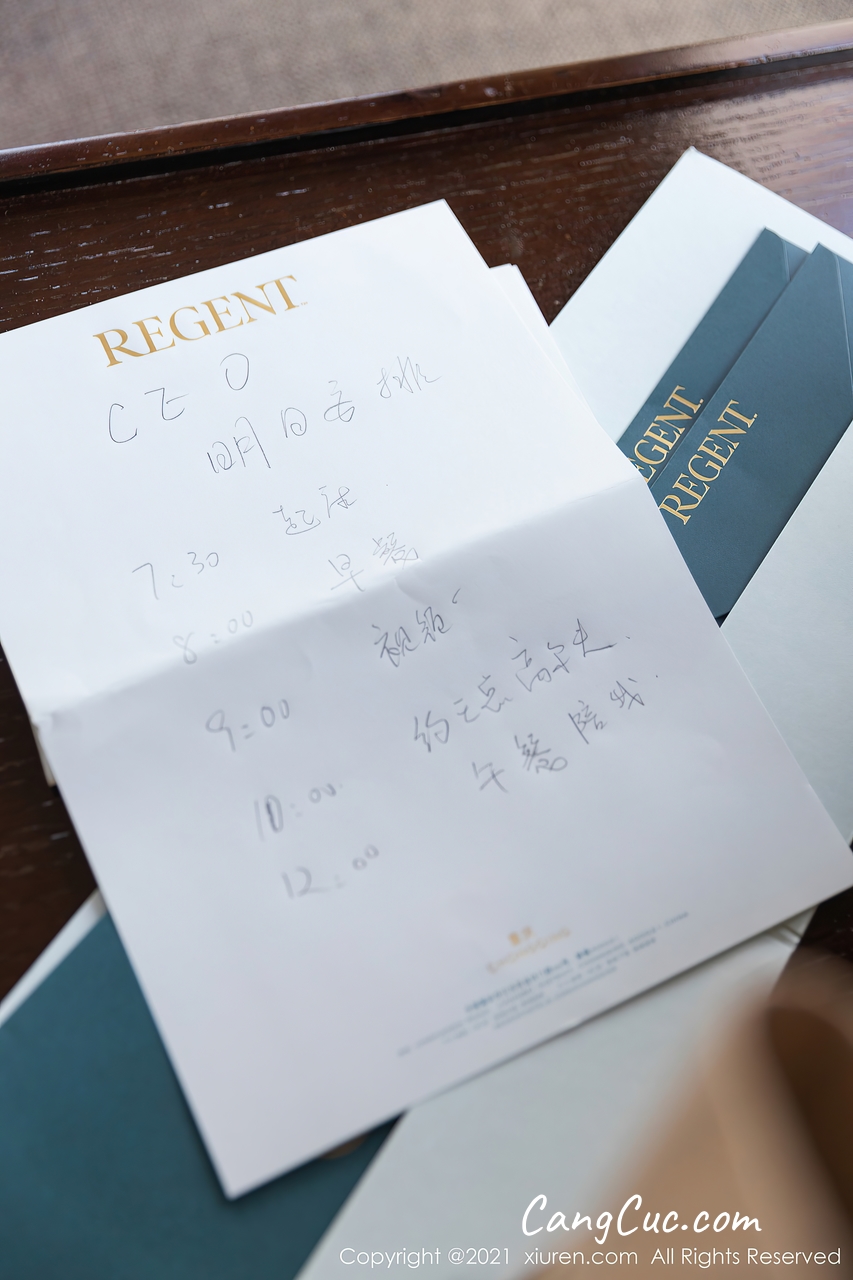 REGENT
CEO
明日安排
7:30 起床
8:00 早餐
9:00 视频
10:00 约王总高尔夫.
12:00 午餐陪我.
REGENT
REGENT
CangCuc.com
Copyright @2021 xiuren.com All Rights Reserved